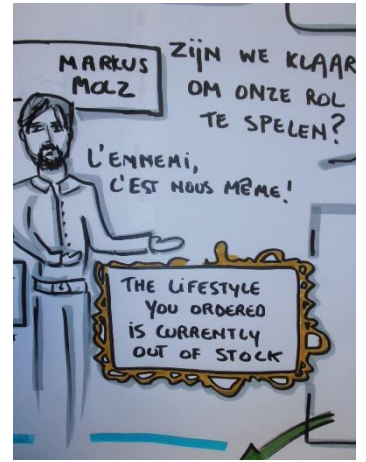 MARKUS
MOLZ
ZIJN WE KLAAR
OM ONZE ROL
TE SPELEN?
L'ENNEMI,
C'EST NOUS MÊME!
THE LIFESTYLE
YOU ORDERED
IS CURRENTLY
OUT OF STOCK